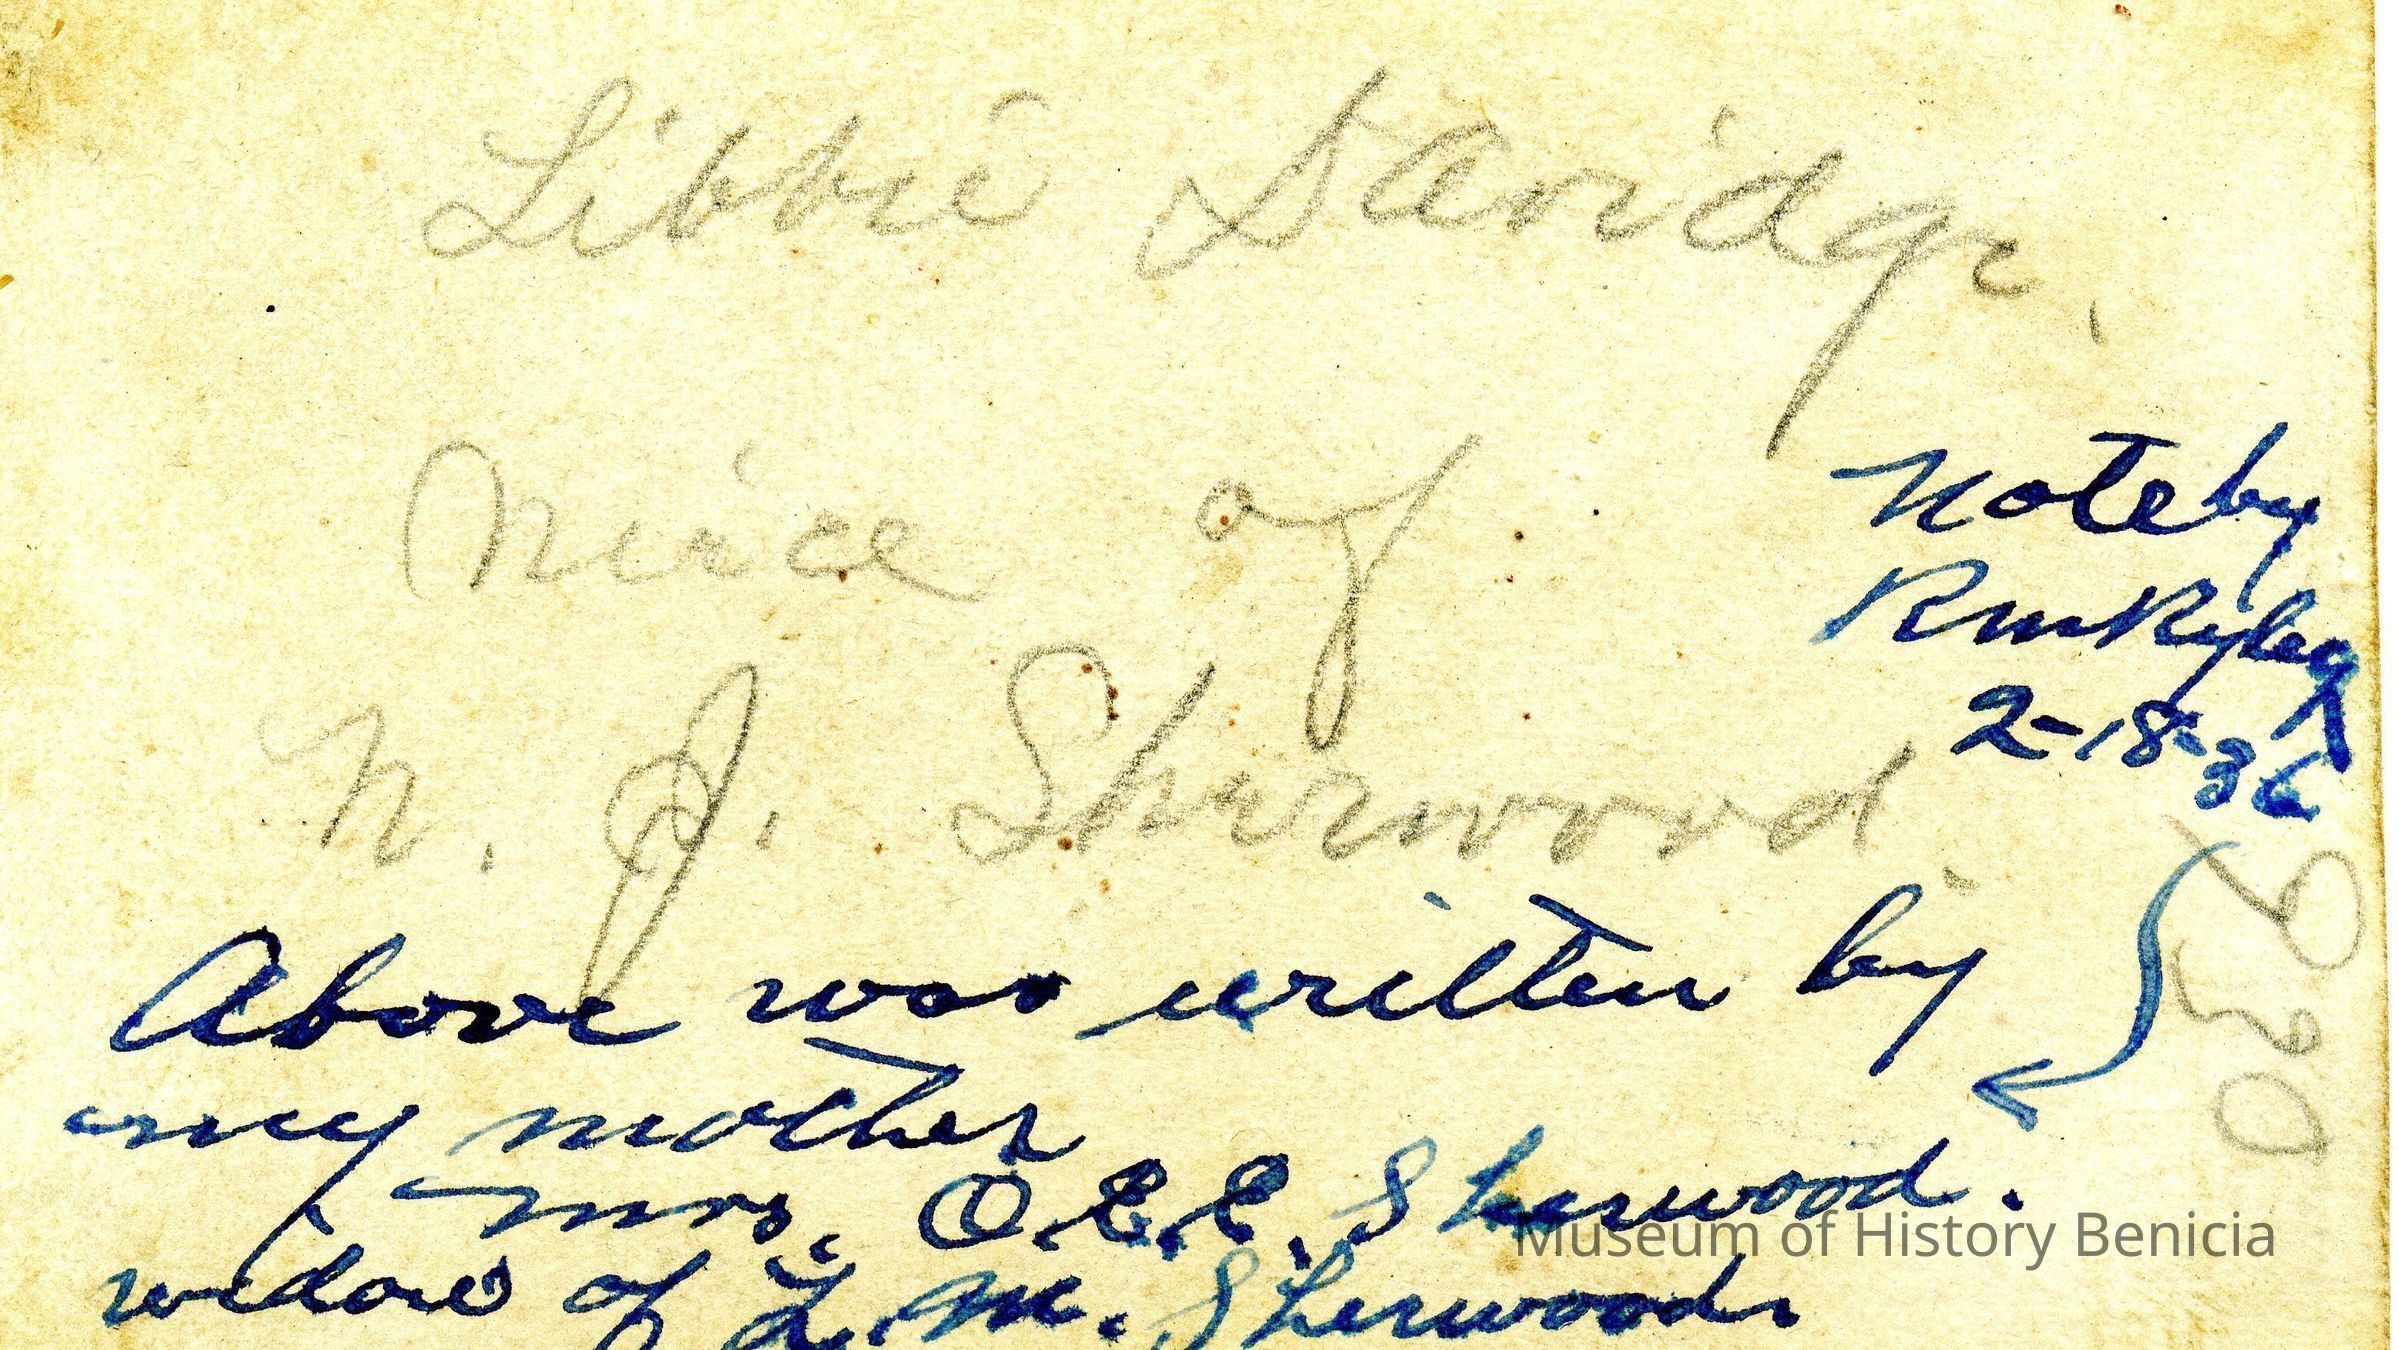 Libbie Davidge,
Niece of
N. J. Sherwood
Note by
2-18-36
Above was written by
my mother
Mrs. O.E.E. Sherwood.
widow of L. M. Sherwood
Museum of History Benicia